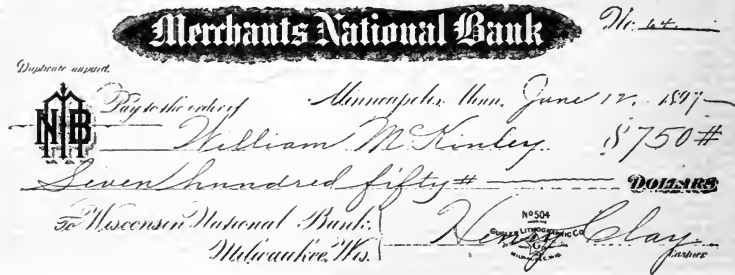 Merchants National Bank
No. 64.
Duplicate unpaid.
Minneapolis, Minn. June 12, 1897
MNB
Pay to the order of
William McKinley $750#
Seven hundred fifty# DOLLARS
To Wisconsin National Bank,
Milwaukee, Wis.
No 504
GUGLER LITHOGRAPHIC CO
G
MILWAUKEE, WIS.
Henry Clay
Cashier